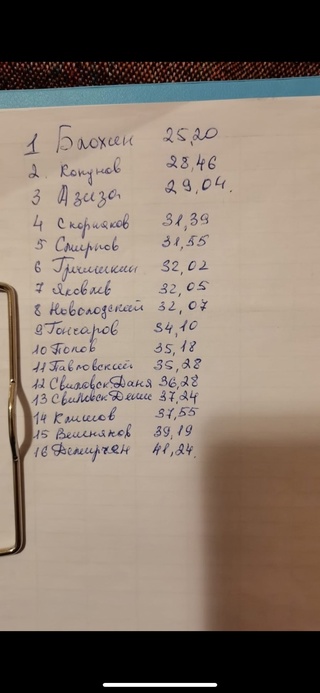 1 Блохин 25,20
2 Кокунов 28,46
3 Азиза 29,04.
4 Скорняков 31,39
5 Смирнов 31,55
6 Гришишкин 32,02
7 Яковлев 32,05
8 Новолодский 32,07
9 Гончаров 34,10
10 Попов 35,18
11 Павловский 35,28
12 Свиховск Даня 36,28
13 Свиховск Дениc 37,24
14 Климов 37,55
15 Вешняков 39,19
16 Демирчян 41,24.